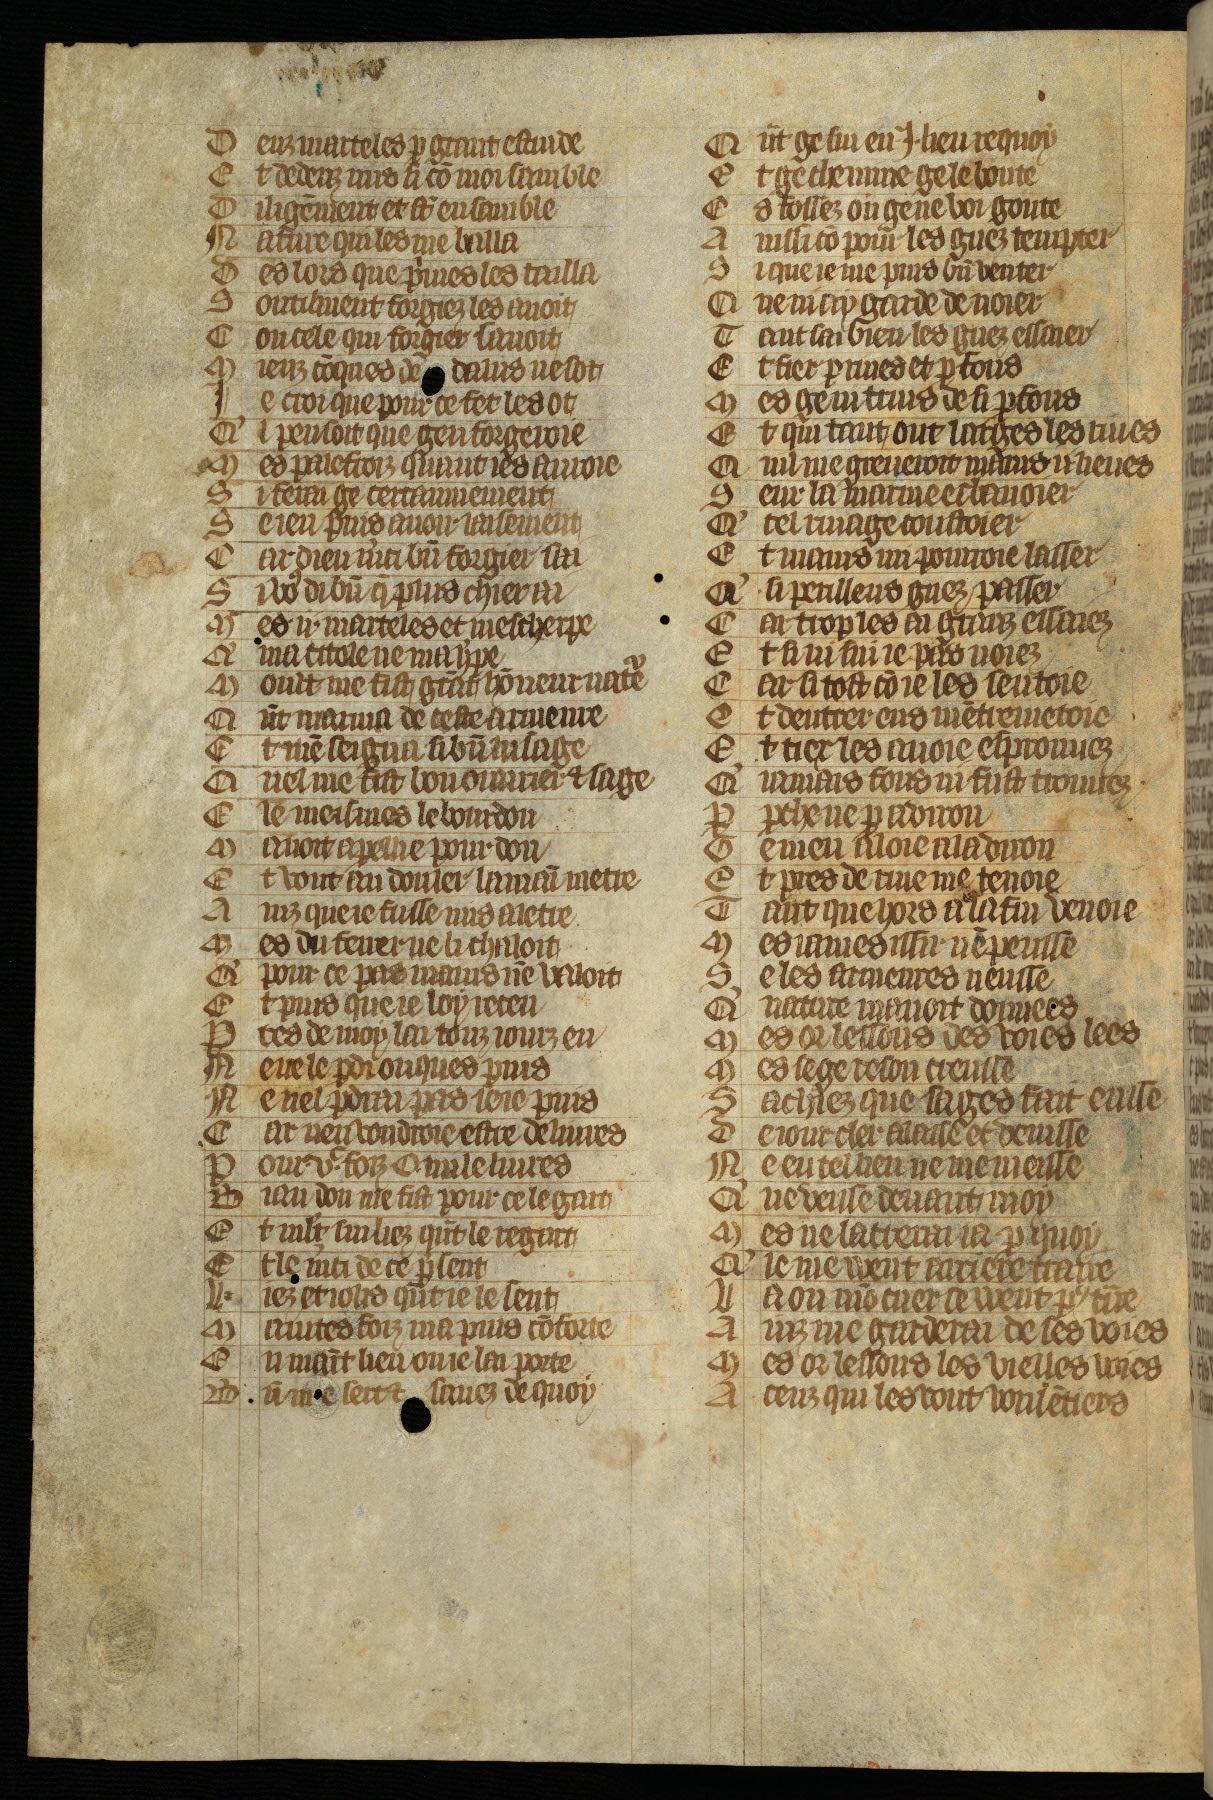 D euz marteles p grant estuide
E t dedenz mis si cō moi samble
D iligēment et st ensamble
N ature qui les me bailla
D es lors que p̄mes les tailla
S outilment forgiez les auoit
C on cele qui forgier sauoit
M ieuz cōques de dalus ne sot
I e croi que pour ce fet les ot
Q' l pensoit que gen forgeroie
M es palefroiz quant ies auroie
S i ferai ge certainnement
S e ien puis auoir aisement
C ar dieu m̄ci bn̄ forgier sai
S i vꝰ di bn̄ q̄ plus chier ai
M es ii marteles et mescherpe
Q' ma citole ne maṙpe
M oult me fist gr̄āt hōneur nat'e
Q n̄t marma de ceste armeure
E t mē seigna si bn̄ lusage
Q uel me fist bon ouurier ⁊ sage
E le meismes le bourdon
M auoit apelie pour don
E t vout au douler la mai metre
A inz que ie fusse mis a letre
M es du ferrer ne li chaloit
Q' pour ce pas mains nē valoit
E t puis que ie loy receu
P res de moy lai touz iourz eu
N e ne le p̄di onques puis
N e nel p̄drai pas se ie puis
C ar nen voudroie estre deliures
P our .vͨ. foiz C. mile liures
B iau don me fist pour ce le gart
E t ml̄t sui liez qn̄t le regart
E t le m̄ci de ce p̄sent
L iez et iolis qn̄t ie le sent
M aintes foiz ma puis cōforte
E n maīt lieu ou ie lai porte
B n̄ me sert ⁊ sauez de quoy
Q n̄t ge sui en .I. lieu requoy
E t ge chemine ge le boute
E s fosses ou ge ne voi goute
A ussi cō pour les guez tempter
S i que ie me puis bn̄ venter
Q ue ni ay garde de noier
T ant sai bien les guez essaier
E t fier p riues et p fons
M es ge ni truis de si p̄fons
E t qui tant out larges les riues
Q uil me greueroit mains ii lieues
S eur la marine esbanoier
Q' tel riuage coustoier
E t mains mi pourroie lasser
Q' si perilleus guez passer
C ar trop les ai granz essaiez
E t si ni sui ie pas noiez
C ar si tost cō ie les sentoie
E t dentrer ens mētremetoie
E t tiex les auoie esprouuez
Q' iamais fons ni fust trouuez
P perche ne p auiron
G e men aloie a lauiron
E t pres de riue me tenoie
T ant que hors a la fin venoie
M es iames issir nē peusse
S e les armeures neusse
Q' nature mauoit donnees
M es or lessons ces voies lees
M es se ge reson creusse
S achiez que sages fait eusse
D e iour cler alasse et venisse
N e en tel lieu ne me meisse
Q' ne veisse deuant moy
M es ne laccerai ia p quoy
Q' le me veut arriere traire
L a ou mō cuer ce veut p' cr̄ie
A inz me garderai de ses voies
M es or lessons les vielles voies
A ceuz qui les vont voulētiers